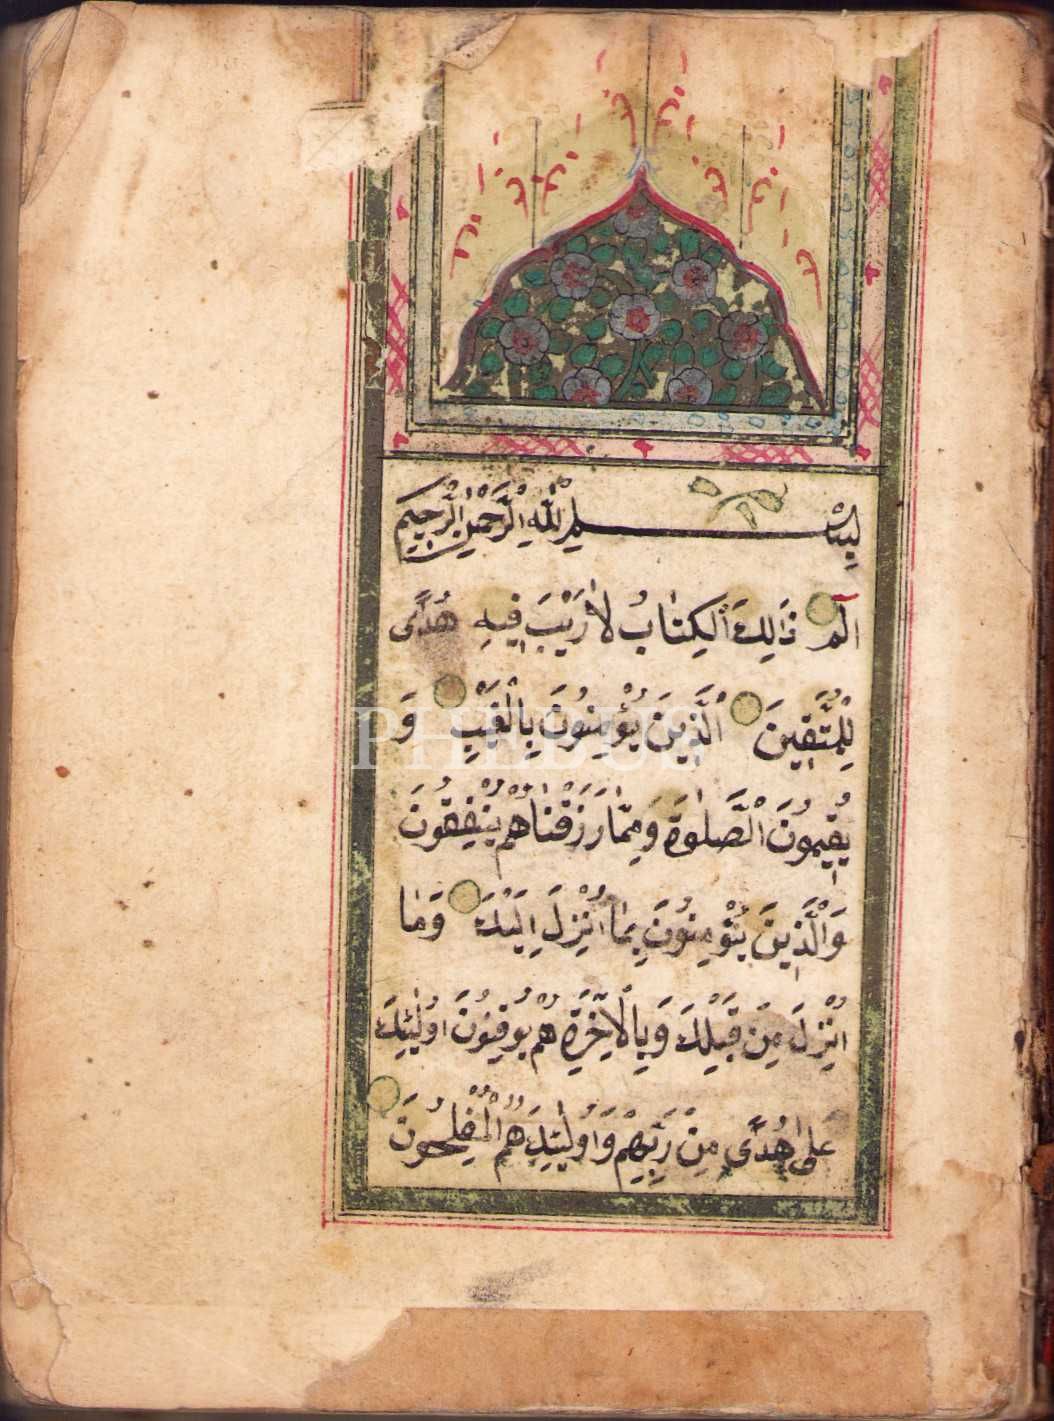 بِسْمِ اللّٰهِ الرَّحْمٰنِ الرَّحِيمِ
الٓمٓ ذَالِكَ الْكِتَابُ لَا رَيْبَ فِيهِ هُدًى
لِلْمُتَّقِينَ اَلَّذِينَ يُؤْمِنُونَ بِالْغَيْبِ وَ
يُقِيمُونَ الْصَّلٰوةَ وَمِمَّا رَزَقْنَاهُمْ يُنْفِقُونَ
وَالَّذِينَ يُؤْمِنُونَ بِمَا اُنْزِلَ اِلَيْكَ وَمَا
اُنْزِلَ مِنْ قَبْلِكَ وَبِالْاٰخِرَةِ هُمْ يُوقِنُونَ اُولٰئِكَ
عَلٰى هُدًى مِنْ رَبِّهِمْ وَاُولٰئِكَ هُمُ الْمُفْلِحُونَ
PHEBUS